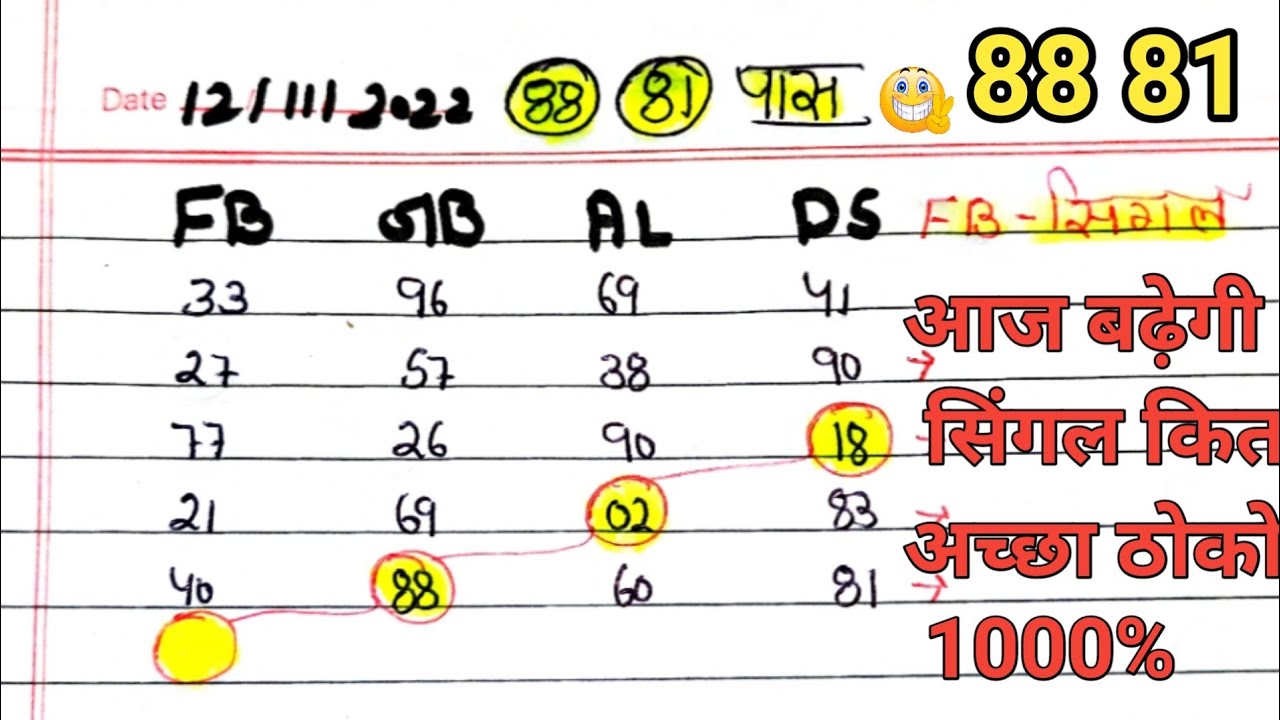 Date 12/11/2022 88 81 पास 88 81
FB जB AL DS FB-सिंगल
33 96 69 41
आज बढ़ेगी
27 57 38 90 →
सिंगल कित
77 26 90 18
21 69 02 83 →
अच्छा ठोको
40 88 60 81 →
1000%